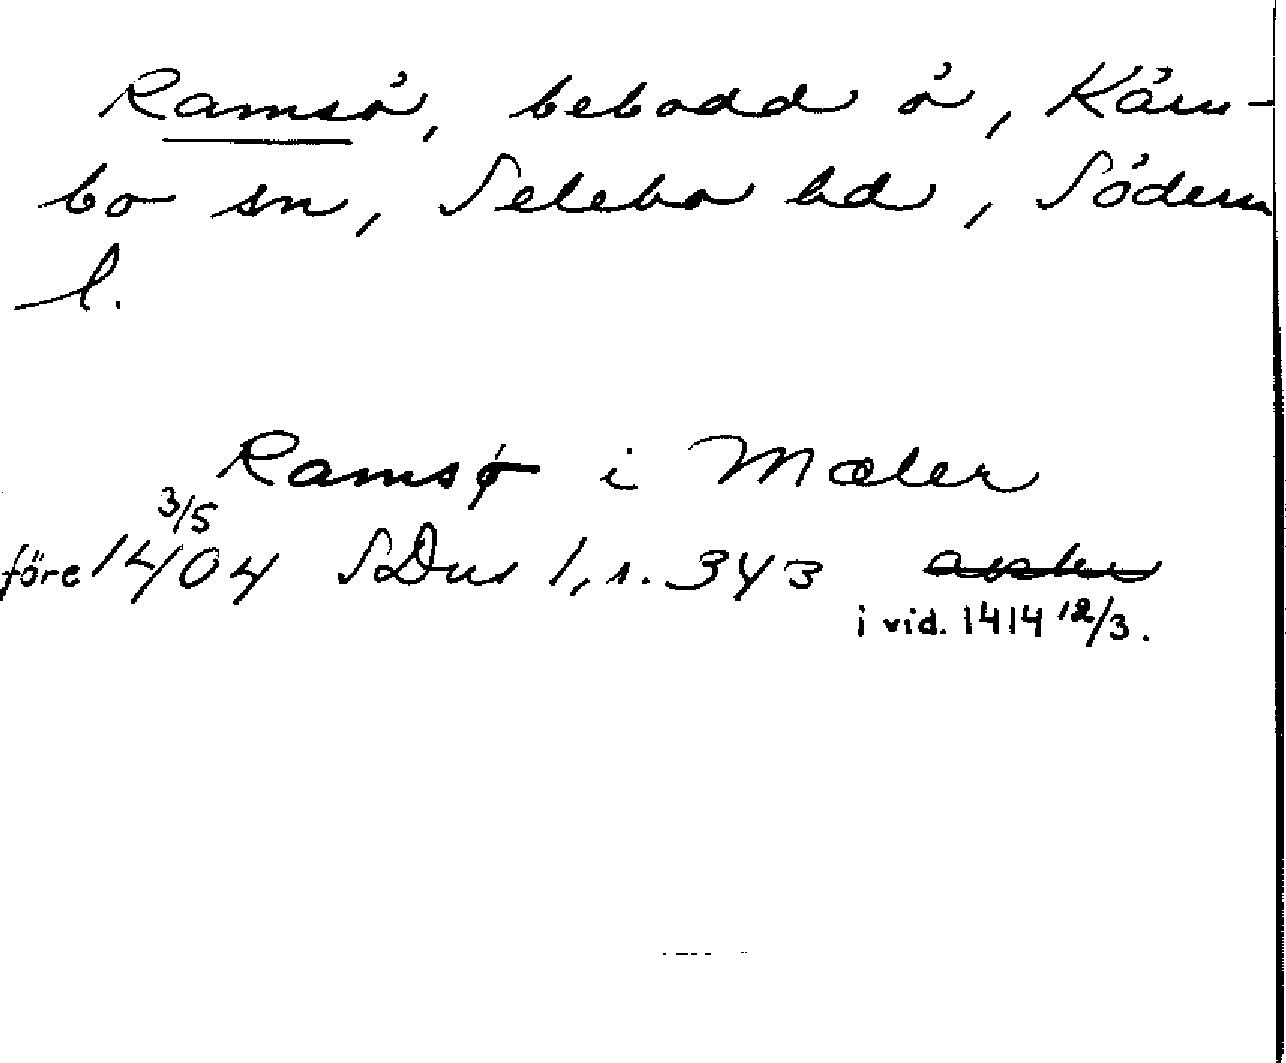 Ramsö, bebodd ö, Kärn-
bo sn, Selebo hd, Söderm
l.
Ramsø i Mæler
3/5
före 1404 SDns 1, s. 343
i vid. 1414 12/3.